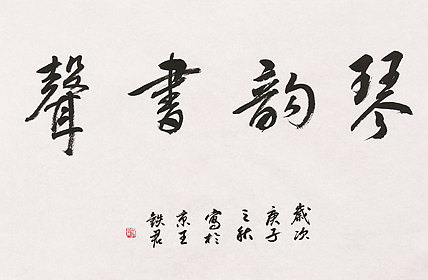 琴韵書聲
歲次
庚子
之秋
寫於
京王
鉄君